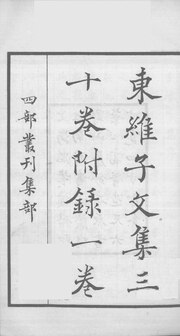 東維子文集三
十卷附録一卷
四部叢刊集部